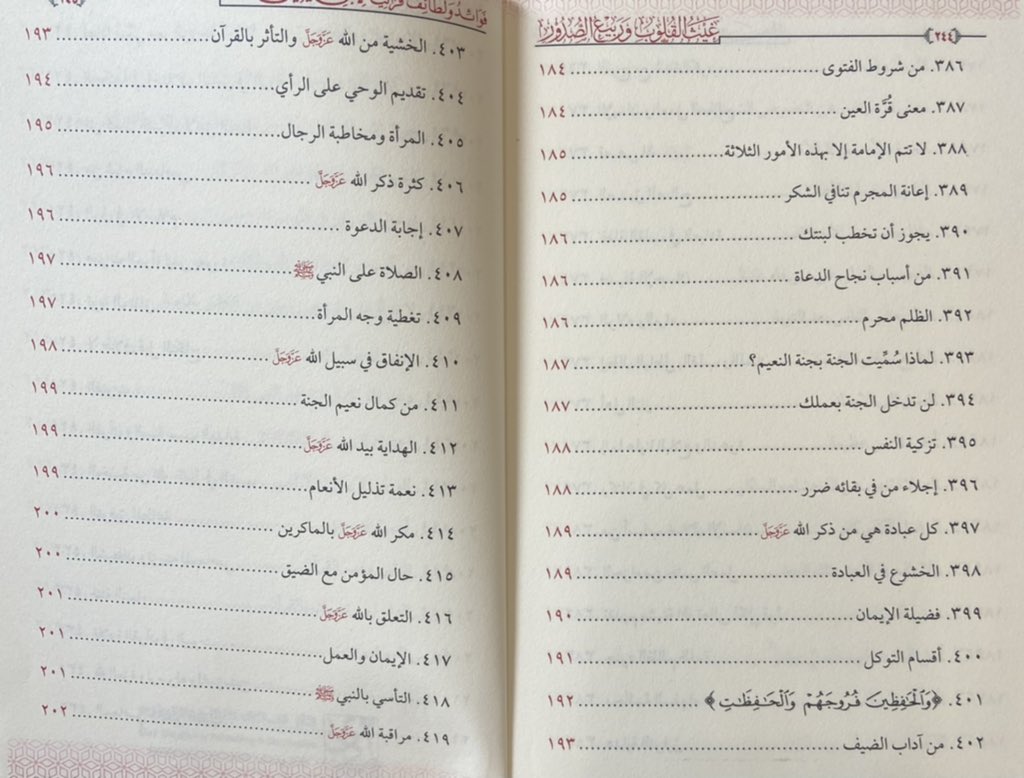 ٢٤٤
غيث القلوب وربيع الصدور
٣٨٦. من شروط الفتوى ١٨٤
٣٨٧. معنى قُرَّة العين ١٨٤
٣٨٨. لا تتم الإمامة إلا بهذه الأمور الثلاثة ١٨٥
٣٨٩. إعانة المجرم تنافي الشكر ١٨٥
٣٩٠. يجوز أن تخطب لبنتك ١٨٦
٣٩١. من أسباب نجاح الدعاة ١٨٦
٣٩٢. الظلم محرم ١٨٦
٣٩٣. لماذا سُمِّيت الجنة بجنة النعيم؟ ١٨٧
٣٩٤. لن تدخل الجنة بعملك ١٨٧
٣٩٥. تزكية النفس ١٨٨
٣٩٦. إجلاء من في بقائه ضرر ١٨٨
٣٩٧. كل عبادة هي من ذكر الله عَزَّوَجَلَّ ١٨٩
٣٩٨. الخشوع في العبادة ١٨٩
٣٩٩. فضيلة الإيمان ١٩٠
٤٠٠. أقسام التوكل ١٩١
٤٠١. ﴿وَٱلْحَٰفِظِينَ فُرُوجَهُمْ وَٱلْحَٰفِظَٰتِ﴾ ١٩٢
٤٠٢. من آداب الضيف ١٩٣
٤٠٣. الخشية من الله عَزَّوَجَلَّ والتأثر بالقرآن ١٩٣
٤٠٤. تقديم الوحي على الرأي ١٩٤
٤٠٥. المرأة ومخاطبة الرجال ١٩٥
٤٠٦. كثرة ذكر الله عَزَّوَجَلَّ ١٩٦
٤٠٧. إجابة الدعوة ١٩٦
٤٠٨. الصلاة على النبي ﷺ ١٩٧
٤٠٩. تغطية وجه المرأة ١٩٧
٤١٠. الإنفاق في سبيل الله عَزَّوَجَلَّ ١٩٨
٤١١. من كمال نعيم الجنة ١٩٩
٤١٢. الهداية بيد الله عَزَّوَجَلَّ ١٩٩
٤١٣. نعمة تذليل الأنعام ١٩٩
٤١٤. مكر الله عَزَّوَجَلَّ بالماكرين ٢٠٠
٤١٥. حال المؤمن مع الضيق ٢٠٠
٤١٦. التعلق بالله عَزَّوَجَلَّ ٢٠١
٤١٧. الإيمان والعمل ٢٠١
٤١٨. التأسي بالنبي ﷺ ٢٠١
٤١٩. مراقبة الله عَزَّوَجَلَّ ٢٠٢